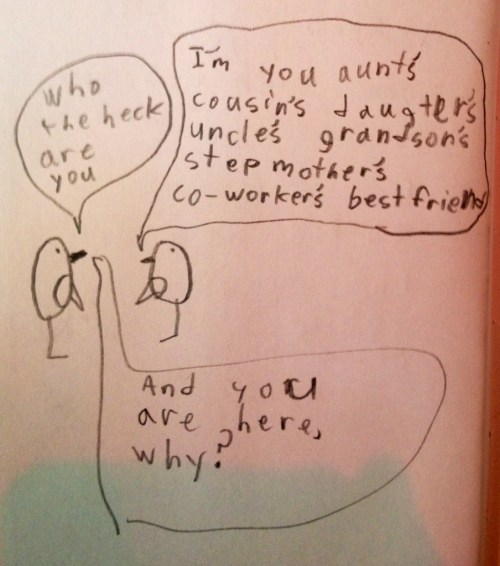 who
the heck
are
you
I'm you aunt's
cousin's daugter's
uncle's grandson's
step mother's
co-worker's best friend
And you
are here,
why?